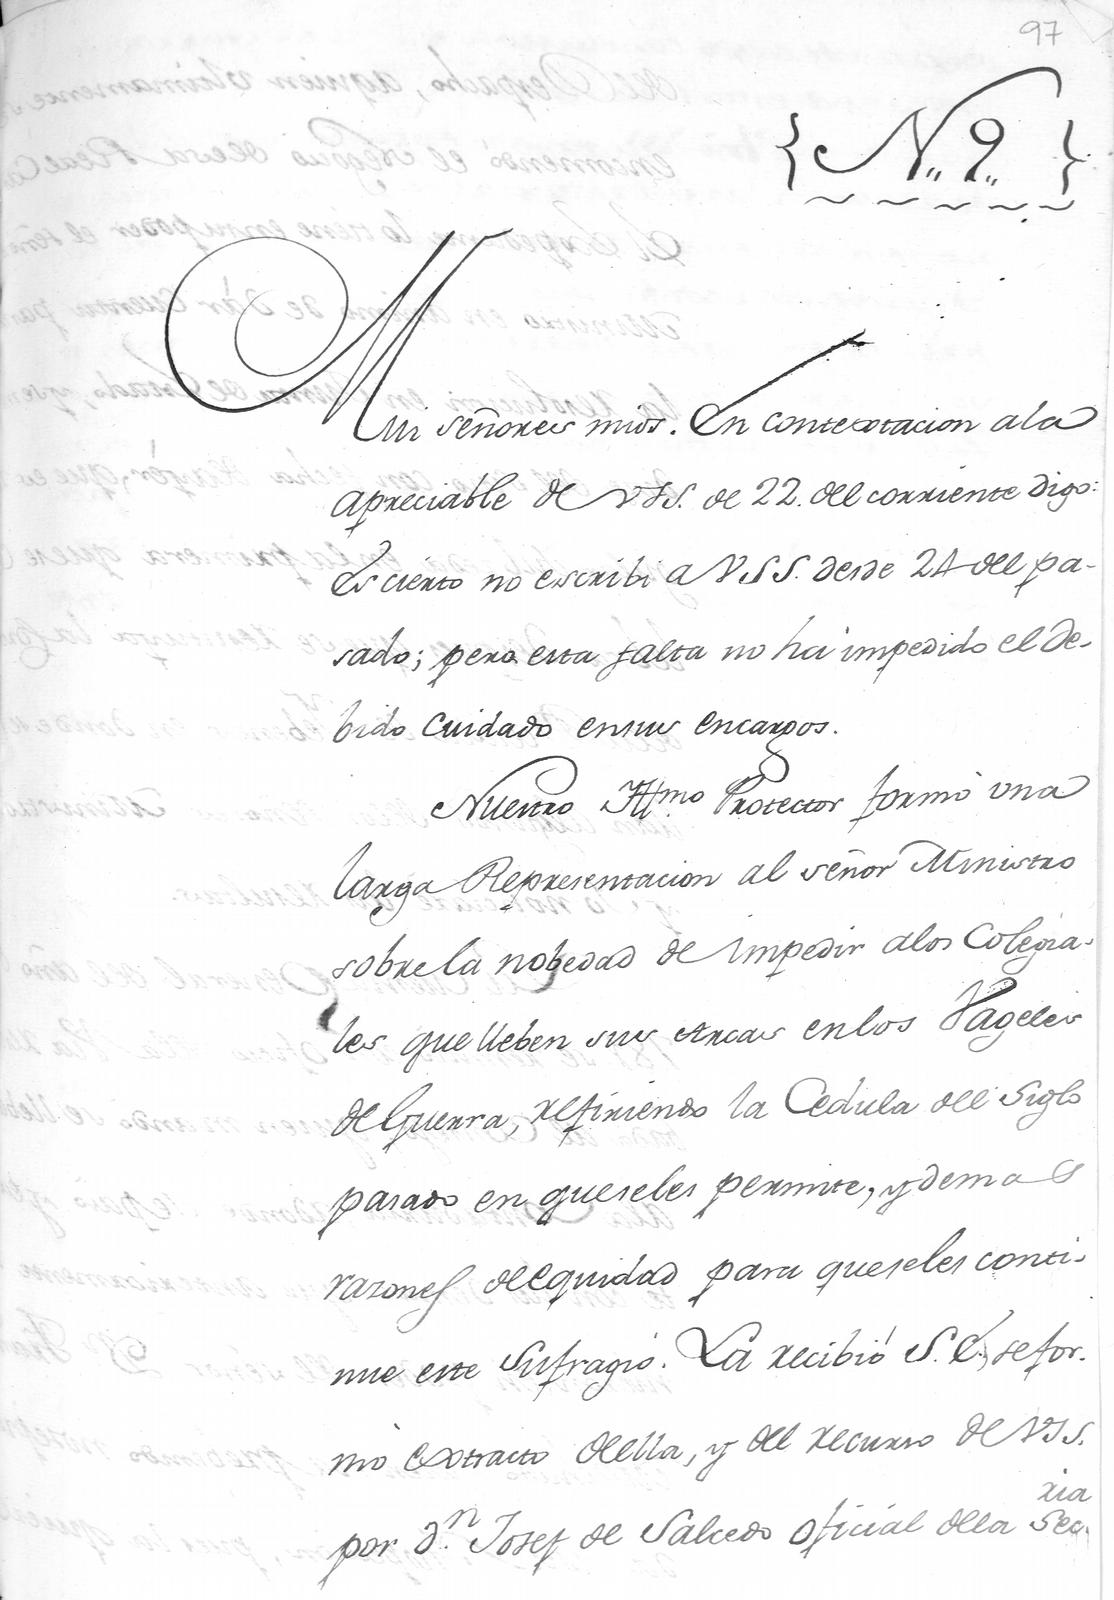 97
{ N,, 9,, }
Mui señores mios. En contextacion ala
apreciable de VSS. de 22. del corriente digo:
Es cierto no escribi a VSS. desde 24 del pa-
sado; pero esta falta no há impedido el de-
bido cuidado ensus encargos.
Nuestro Yllmo Protector formó una
larga Representacion al señor Ministro
sobre la nobedad de impedir alos Colegia-
les que lleben sus Arcas enlos Vageles
de Guerra, refiriendo la Cedula del Siglo
pasado en queseles permite, y demas
razones de equidad para queseles conti-
nue este Sufragio. La recibió S. E., se for-
mó extracto della, y del recurso de VSS.
por Dn. Josef de Salcedo oficial dela Secria